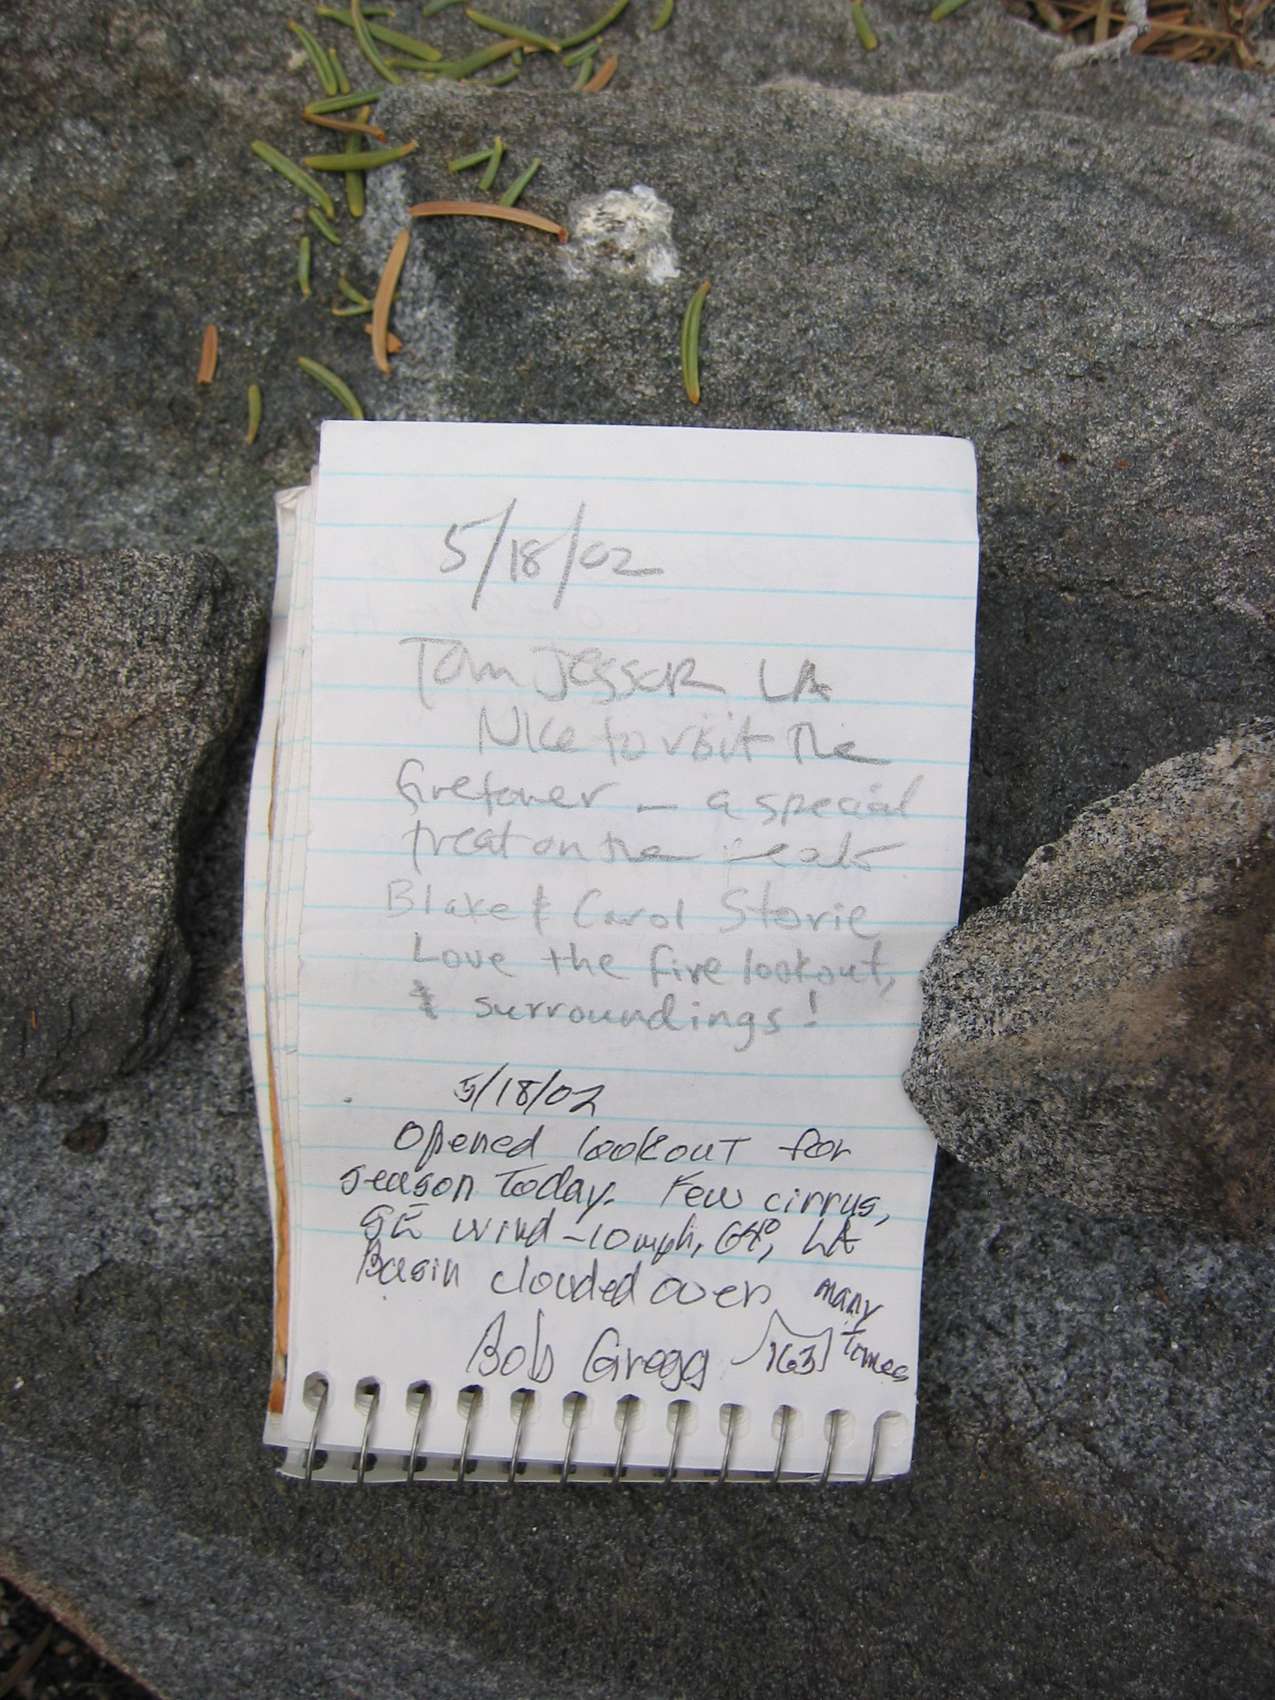 5/18/02
Tom Jessor LA
Nice to visit the
firetower – a special
treat on the
Blake & Carol Storie
Love the fire lookout,
& surroundings!
5/18/02
Opened lookout for
season today. Few cirrus,
SE wind ~10 mph, 64°, LA
Basin clouded over many
Bob Gregg 163 times